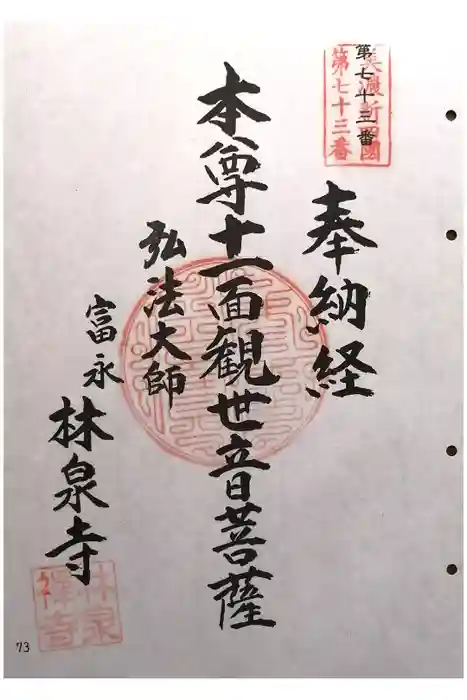 第七十三番
美濃新四國
第七十三番
奉納経
本尊十一面観世音菩薩
弘法大師
富永
林泉寺
林泉
禅寺
73